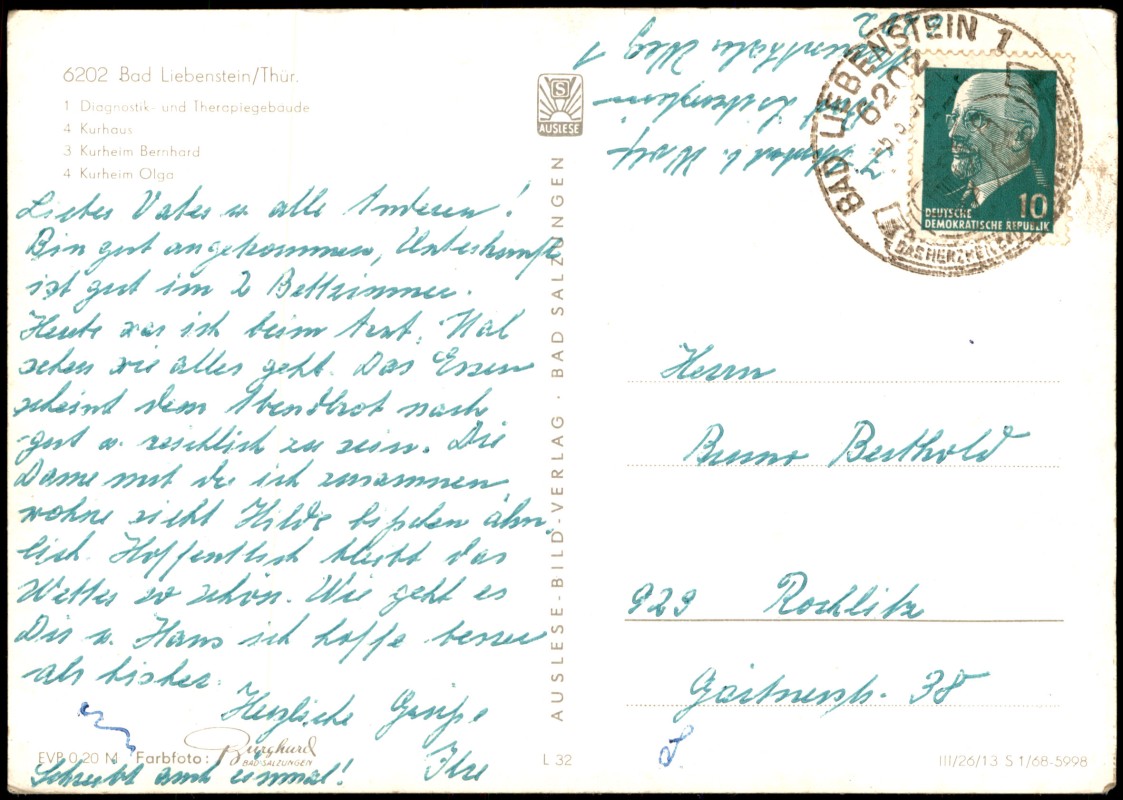 6202 Bad Liebenstein/Thür.
1 Diagnostik- und Therapiegebäude
4 Kurhaus
3 Kurheim Bernhard
4 Kurheim Olga
Lieber Vater u alle Anderen!
Bin gut angekommen, Unterkunft
ist gut im 2 Bettzimmer.
Heute war ich beim Arzt. Mal
sehen wie alles geht. Das Essen
scheint dem Abendbrot nach
gut u. reichlich zu sein. Die
Dame mit der ich zusammen
wohne sieht Hilde bißchen ähn-
lich. Hoffentlich bleibt das
Wetter so schön. Wie geht es
Dir u. Hans ich hoffe besser
als bisher.
Herzliche Grüße
Ihre
Schreibt auch einmal!
EVP 0,20 M Farbfoto: Burghurd
BAD SALZUNGEN
L 32
AUSLESE-BILD-VERLAG · BAD SALZUNGEN
S
AUSLESE
Bad Liebenstein
Weg 1
BAD LIEBENSTEIN 1
6202
DEUTSCHE
DEMOKRATISCHE REPUBLIK
10
Herrn
Bruno Berthold
929 Rochlitz
Gärtnerstr. 38
III/26/13 S 1/68-5998